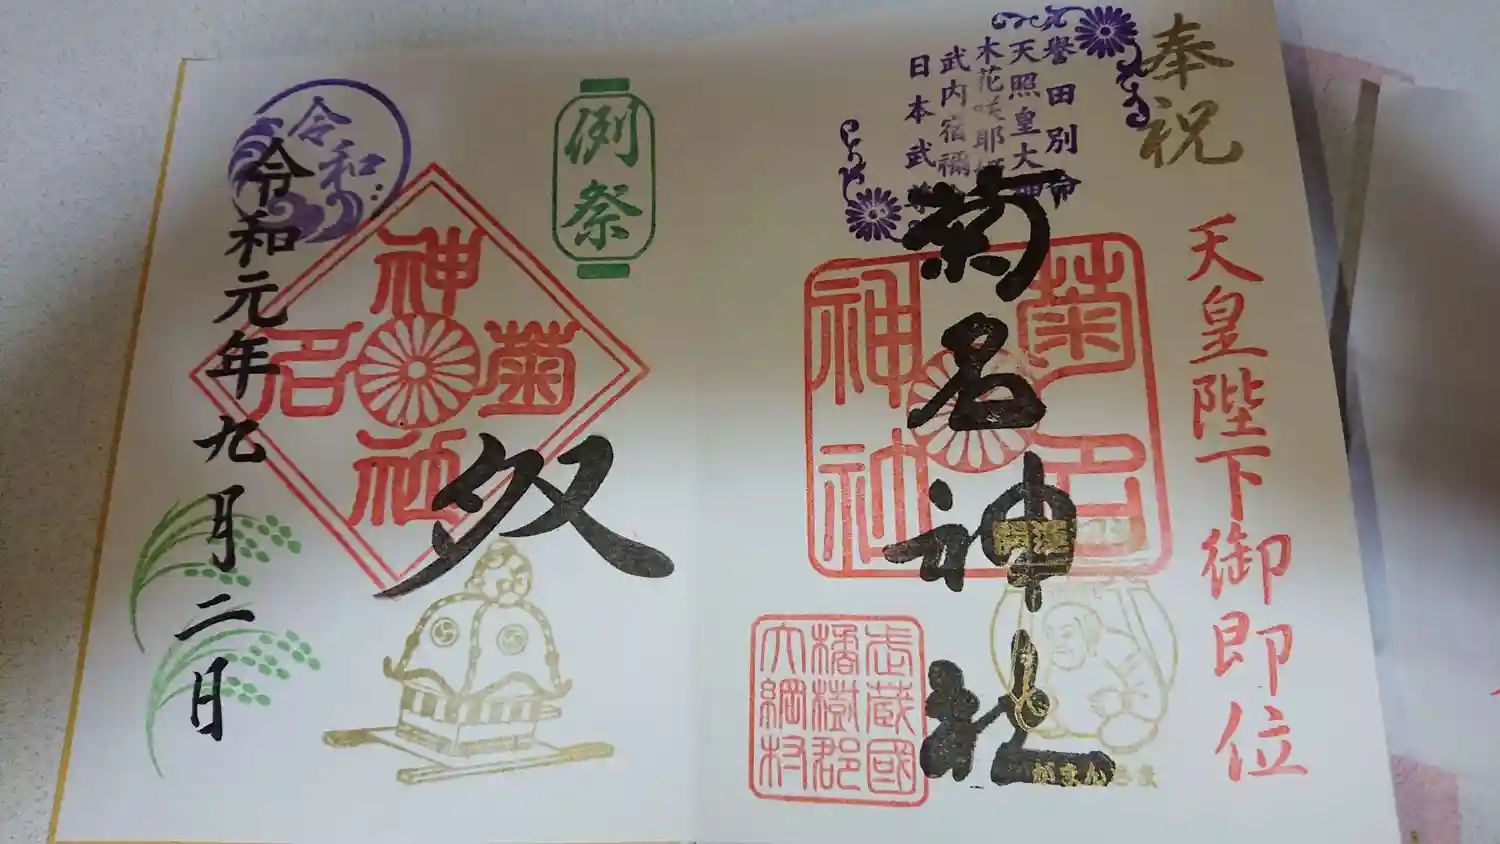 奉祝
天皇陛下御即位
誉田別命
天照皇大神
木花咲耶姫
武内宿禰
日本武尊
菊名神社
菊名神社
開運
がまんさま
武蔵國
橘樹郡
大綱村
例祭
奴
神
菊
名
社
令和
令和元年九月二日